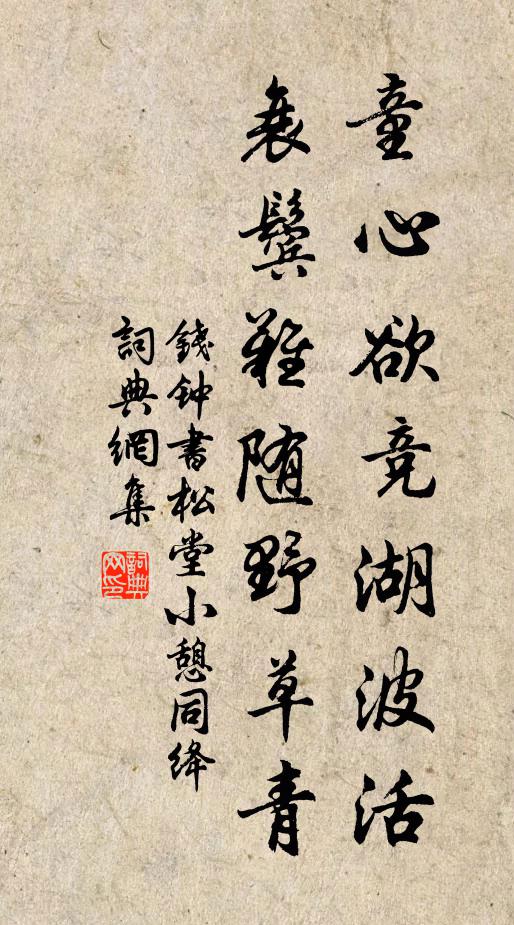 童心欲竞湖波活
衰鬓难随野草青
錢钟書松堂小憩同绛
詞典網集
詞典网印